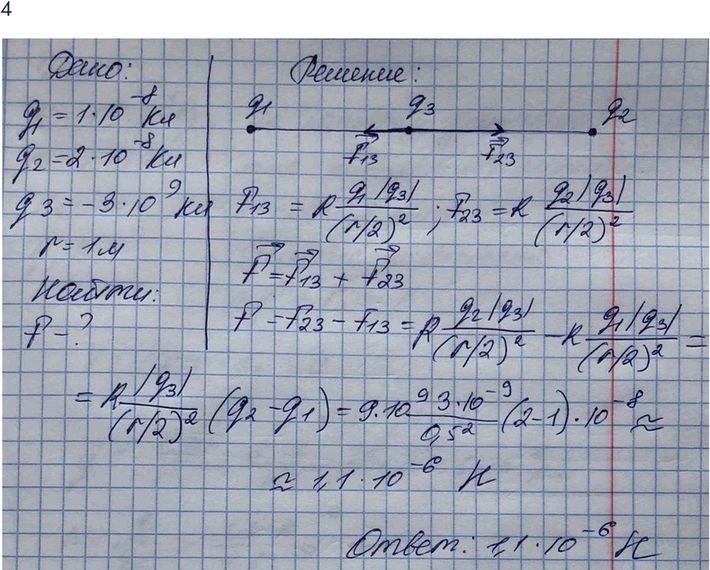 4
Дано:
q1 = 1·10⁻⁸ Кл
q2 = 2·10⁻⁸ Кл
q3 = -3·10⁹ Кл
r = 1м
Найти:
F - ?
Решение:
q1 q3 q2
F⃗13 F⃗23
F13 = k q1|q3|/(r/2)² ; F23 = k q2|q3|/(r/2)²
F⃗ = F⃗13 + F⃗23
F = F23 - F13 = k q2|q3|/(r/2)² - k q1|q3|/(r/2)² =
= k |q3|/(r/2)² (q2 - q1) = 9·10⁹ 3·10⁻⁹/0,5² (2-1)·10⁻⁸ ≈
≈ 1,1·10⁻⁶ Н
Ответ: 1,1·10⁻⁶ Н